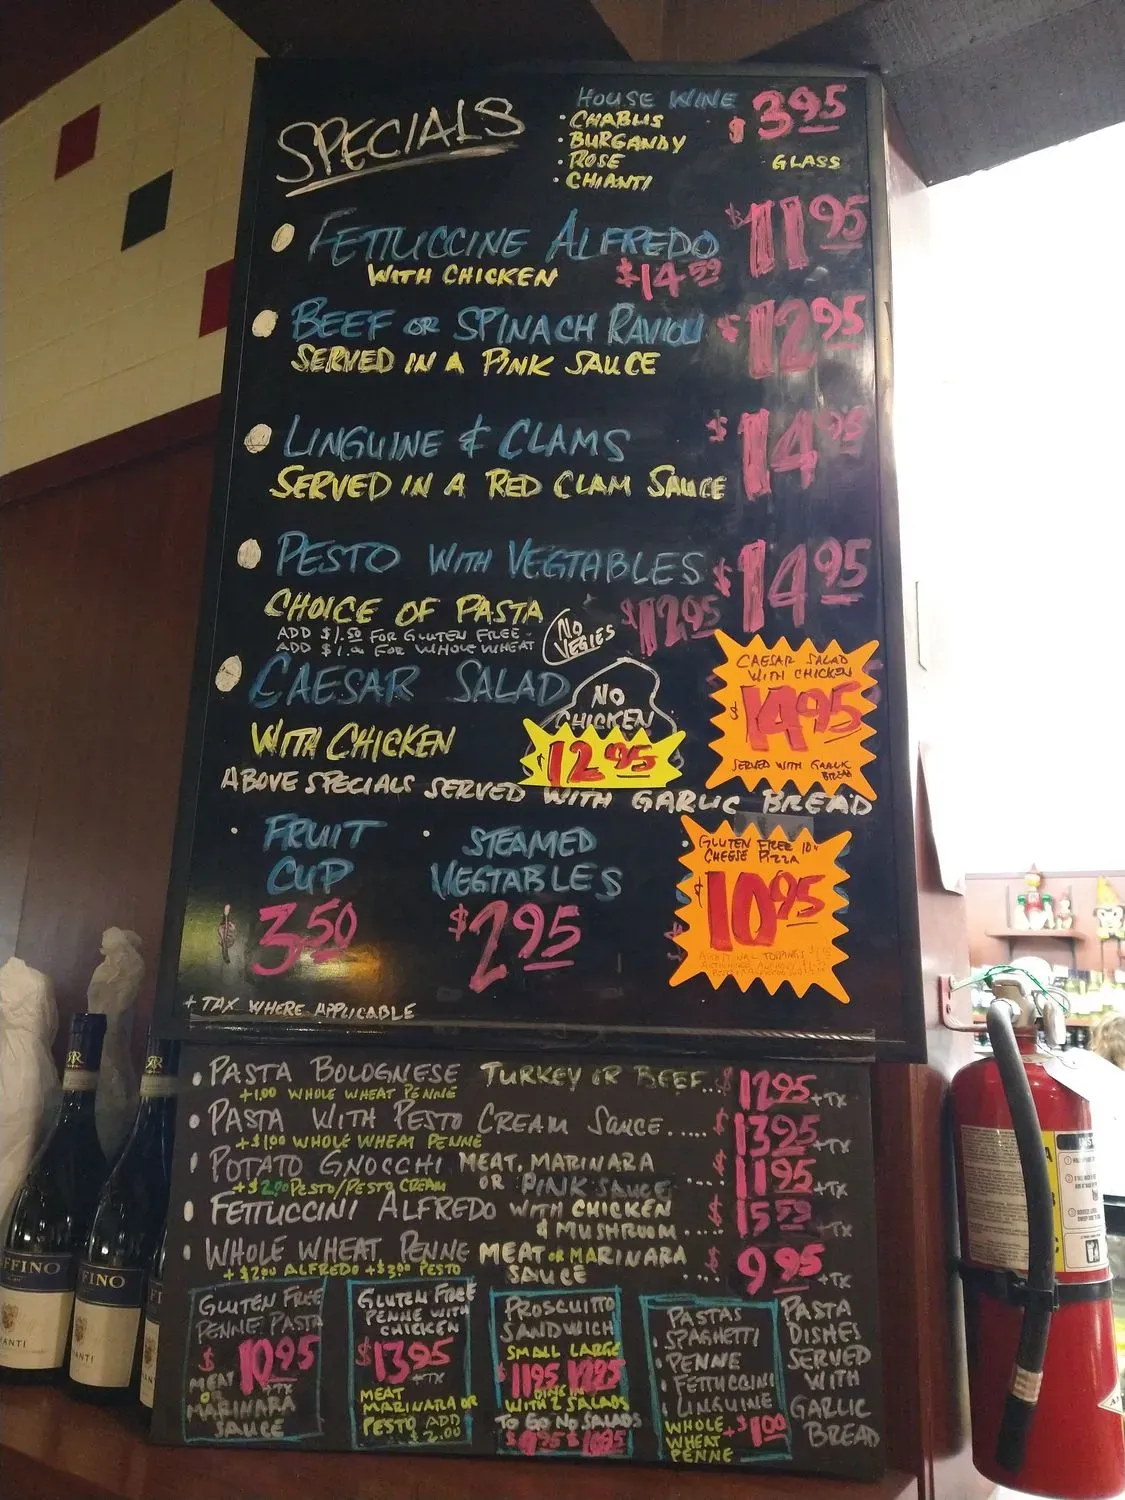 SPECIALS
HOUSE WINE $3.95
• CHABLIS
• BURGANDY
• ROSE
• CHIANTI
GLASS
FETTUCCINE ALFREDO $11.95
WITH CHICKEN $14.59
BEEF OR SPINACH RAVIOLI $12.95
SERVED IN A PINK SAUCE
LINGUINE & CLAMS $14.95
SERVED IN A RED CLAM SAUCE
PESTO WITH VEGTABLES $14.95
CHOICE OF PASTA
NO VEGIES $12.95
ADD $1.50 FOR GLUTEN FREE
ADD $1.00 FOR WHOLE WHEAT
CAESAR SALAD
WITH CHICKEN
NO
CHICKEN
12.95
CAESAR SALAD
WITH CHICKEN
$14.95
SERVED WITH GARLIC
BREAD
ABOVE SPECIALS SERVED WITH GARLIC BREAD
• FRUIT
CUP
3.50
• STEAMED
VEGTABLES
$2.95
GLUTEN FREE 10"
CHEESE PIZZA
$10.95
+ TAX WHERE APPLICABLE
• PASTA BOLOGNESE TURKEY OR BEEF.. $12.95 +TX
+1.00 WHOLE WHEAT PENNE
• PASTA WITH PESTO CREAM SAUCE..... $13.25 +TX
+$1.00 WHOLE WHEAT PENNE
• POTATO GNOCCHI MEAT, MARINARA
OR PINK SAUCE .... 11.95 +TX
+$2.00 PESTO/PESTO CREAM
• FETTUCCINI ALFREDO WITH CHICKEN
& MUSHRUM.. $15.59 +TX
• WHOLE WHEAT PENNE MEAT OR MARINARA
SAUCE .... $9.95 +TX
+$2.00 ALFREDO +$3.00 PESTO
GLUTEN FREE
PENNE PASTA
$10.95
+TX
MEAT
OR
MARINARA
SAUCE
GLUTEN FREE
PENNE WITH
CHICKEN
$13.95
+TX
MEAT
MARINARA OR
PESTO ADD
$2.00
PROSCUITTO
SANDWICH
SMALL LARGE
$11.95
WITH 2 SALADS
TO GO NO SALADS
PASTAS
• SPAGHETTI
• PENNE
• FETTUCCINI
• LINGUINE
WHOLE +$1.00
WHEAT
PENNE
PASTA
DISHES
SERVED
WITH
GARLIC
BREAD
FFINO
ANTI
FFINO
ANTI